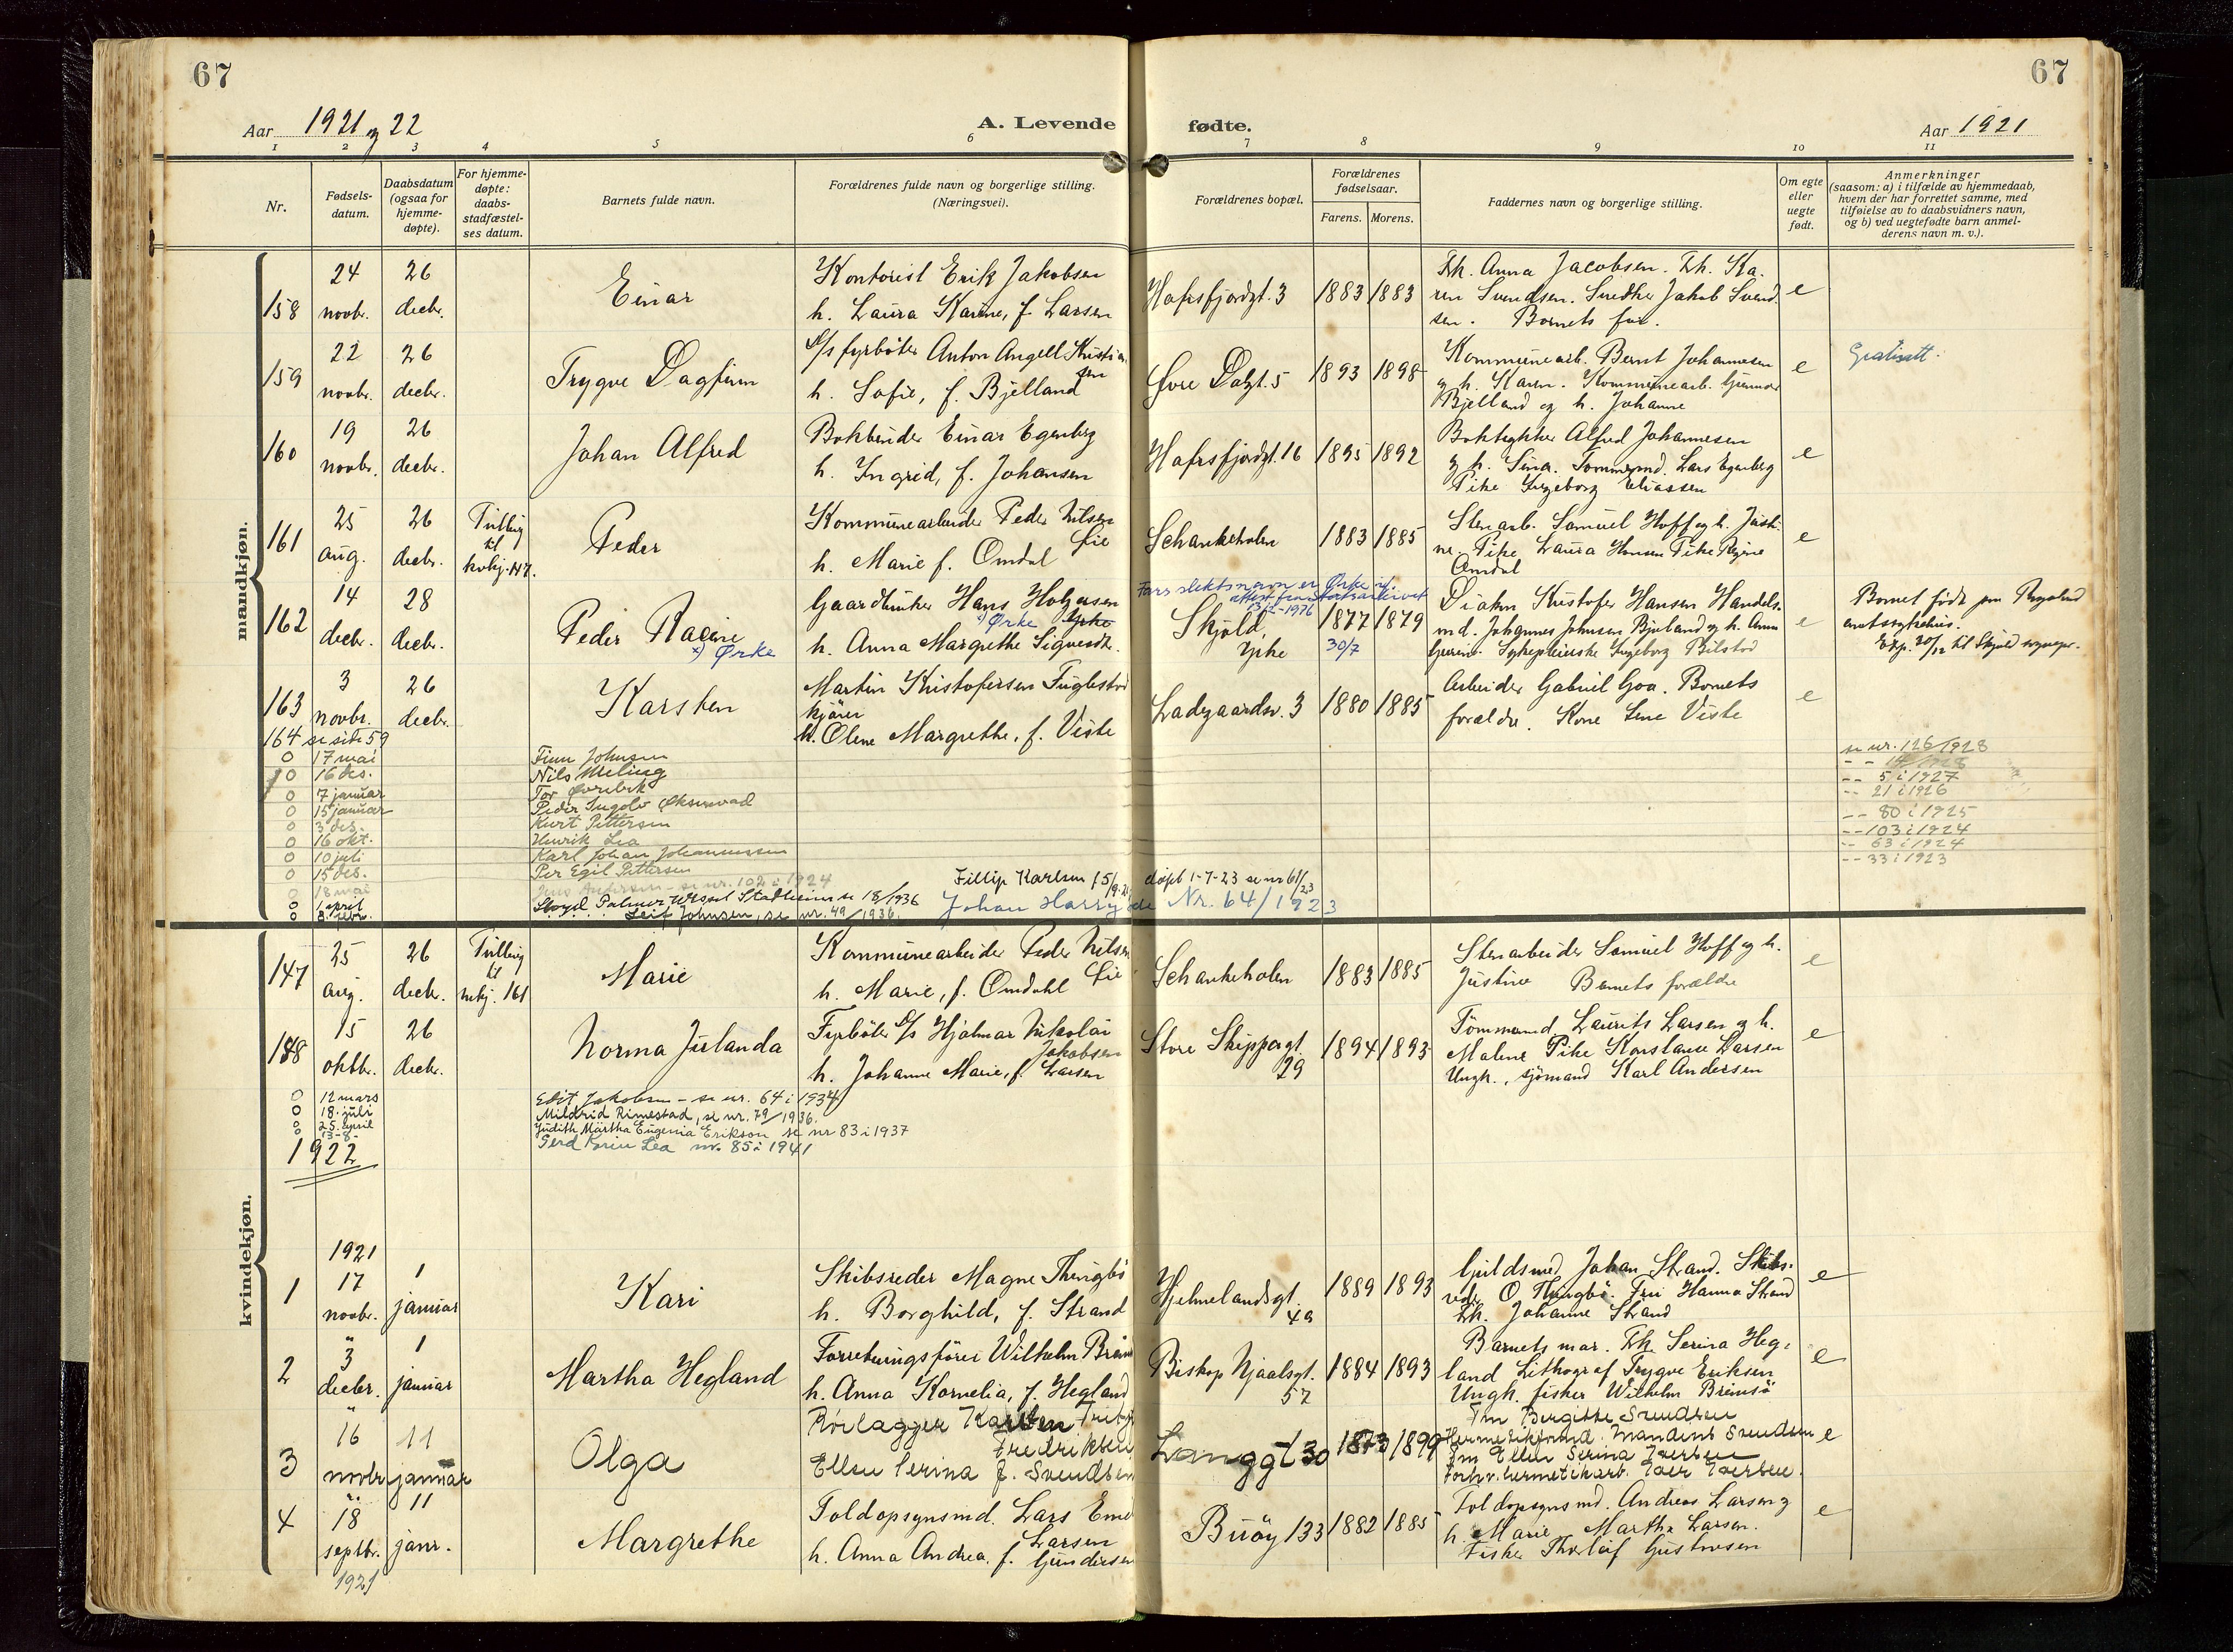 67
67
Aar 1921 og 22
A. Levende fødte.
Aar 1921
1 2 3 4 5 6 7 8 9 10 11
Nr.
Fødsels-
datum.
Daabsdatum
(ogsaa for
hjemme-
døpte).
For hjemme-
døpte:
daabs-
stadfæstel-
ses datum.
Barnets fulde navn.
Forældrenes fulde navn og borgerlige stilling.
(Næringsvei).
Forældrenes bopæl.
Forældrenes
fødselsaar.
Farens. Morens.
Faddernes navn og borgerlige stilling.
Om egte
eller
uegte
født.
Anmerkninger
(saasom: a) i tilfælde av hjemmedaab,
hvem der har forrettet samme, med
tilføielse av to daabsvidners navn,
og b) ved uegtefødte barn anmel-
derens navn m. v.).
mandkjøn.
158
24
novbr.
26
decbr.
Einar
Kontorist Erik Jakobsen
h. Laura Karine, f. Larsen
Hafrsfjordgt. 3
1883 1883
Frk. Anna Jacobsen. Frk. Ka-
ren Svendsen. Snedker Jakob Svend-
sen. Barnets far.
e
159
22
novbr.
26
decbr.
Trygve Dagfinn
D/s fyrbøter Anton Angell Kristian
sen
h. Sofie, f. Bjelland
Øvre Dalgt. 5
1893 1898
Kommunearb. Bernt Johannesen
og h. Karen. Kommunearb. Gunnar
Bjelland og h. Johanne
e
160
19
novbr.
26
decbr.
Johan Alfred
Bokbinder Einar Egenberg
h. Ingrid, f. Johansen
Hafrsfjordgt. 16
1895 1892
Boktrykker Alfred Johannesen
og h. Sina. Tømmermd. Lars Egenberg
Pike Ingeborg Eliassen
e
161
25
aug.
26
decbr.
Tvilling
til
kvkj. 147.
Peder
Kommunearbeider Peder Nilsen
Lie
h. Marie f. Omdal
Schankeholen
1883 1885
Stenarb. Samuel Hoff og h. Justi-
ne. Pike Laura Hansen Pike Regine
Omdal
e
162
14
decbr.
28
decbr.
Peder Racine
x) Ørke
Gaardbruker Hans Holgersen
x) Ørke Yrke
h. Anna Margrethe Sigvardtr.
Fars slektsnavn er Ørke if.
attest fra Statsarkivet
13/2-1976
Skjold,
Yrke
1877 1879
30/7
Diakon Kristofer Hansen Handels-
md. Johannes Johnsen Bjuland og h. Anna
Gurine. Sykepleierske Ingeborg Bilstad
e
Barnet født paa Rogaland
amtssykehus.
Exp. 30/12 til Skjold sognepr.
163
3
novbr.
26
decbr.
Karsten
Martin Kristofersen Fuglestad
kjører
h. Olene Margrethe, f. Viste
Ladegaardsv. 3
1880 1885
Arbeider Gabriel Goa. Barnets
forældre. Kone Lene Viste
e
164 se side 59
0 17 mai Finn Johnsen se nr. 126/1928
0 16 des. Nils Meling
0 7 januar Tor Øvrebek -- 5 i 1927
0 15 januar Peder Ingolv Øksnevad -- 21 i 1926
0 3 des. Kurt Pettersen -- 80 i 1925
0 16 okt. Henrik Lea -- 103 i 1924
0 10 juli Karl Johan Johannessen -- 63 i 1924
0 15 des. Per Egil Pettersen -- 33 i 1923
0 18 mai Jens Andersen - se nr. 102 i 1924
Fillip Karlsen f 5/9-21, døpt 1-7-23 se nr 61/23
0 1 april Lloyd Palmer Stadheim se 18/1936
0 8. febr. Leif Johnsen, se nr. 49/1936.
Johan Harry se Nr. 64/1923
kvindekjøn.
147
25
aug.
26
decbr.
Tvilling
til
mkj. 161
Marie
Kommunearbeider Peder Nilsen
Lie
h. Marie, f. Omdahl
Schankeholen
1883 1885
Stenarbeider Samuel Hoff og h.
Justine Barnets forældre
e
188
15
oktbr.
26
decbr.
Norma Julanda
Fyrbøter D/s Hjalmar Nikolai
Jakobsen
h. Johanne Marie, f. Larsen
Store Skippergt.
29
1894 1893
Tømmermd. Laurits Larsen og h.
Malene Pike Konstanse Larsen
Ungk., sjømand Karl Andersen
e
0 12 mars Edit Jakobsen - se nr. 64 i 1934
0 18. juli Mildrid Rimestad, se nr. 79/1936.
0 25. april Judith Märtha Eugenia Erikson se nr 83 i 1937
0 13-8- Gerd Karin Lea nr. 85 i 1941
1922
1921
1
17
novbr.
1
januar
Kari
Skibsreder Magne Thengbø
h. Borghild, f. Strand
Hjelmelandsgt.
4a
1889 1893
Guldsmed Johan Strand. Skibs-
reder O Thengbø. Fru Hanna Strand
Frk. Johanne Strand
e
2
"
3
decbr.
1
januar
Martha Hegland
Forretningsfører Wilhelm Brems
h. Anna Kornelia, f. Hegland
Biskop Njaalsgt.
57
1884 1893
Barnets mor. Frk. Serina Heg-
land Lithograf Trygve Eriksen
Ungk. fisker Wilhelm Bremsø
e
3
"
16
novbr
11
januar
Olga
Rørlægger Karsten
Fredriksen
Ellen Serina f. Svendsen
Langgt 30
1873 1899
Fru Bergitte Svendsen
Svendsen
Fru Ellen Serina Iversen
Iver Iversen.
e
4
"
18
septbr.
1921
11
janr.
Margrethe
Toldopsynsmd. Lars Emil
Larsen
h. Anna Andrea, f. Gundersen
Buøy 133
1882 1885
Toldopsynsmd. Andreas Larsen og
h. Marie. Martha Larsen.
Fisker Thorleif Gustavsen
e